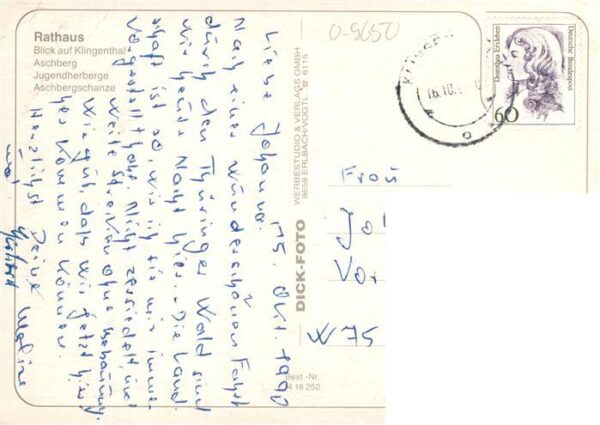 Rathaus
Blick auf Klingenthal
Aschberg
Jugendherberge
Aschbergschanze
15. Okt. 1990
Liebe Johanna.
Nach einer wunderschönen Fahrt
durch den Thüringer Wald sind
wir heute Nacht hier. Die Land-
schaft ist so, wie ich sie mir immer
vorgestellt habe. Nicht zersiedelt, und
weite Strecken ohne Bebauung.
Wie gut, daß wir jetzt hier
her kommen können.
Herzlichst Deine
und
DICK-FOTO
WERBESTUDIO & VERLAGS GMBH
9658 ERLBACH/VOGTL. ☎ 6115
Best.-Nr.
04 18 252
0-9650
16.10.
Deutsche Bundespost
60
Frau
Jo
Vor
W 75